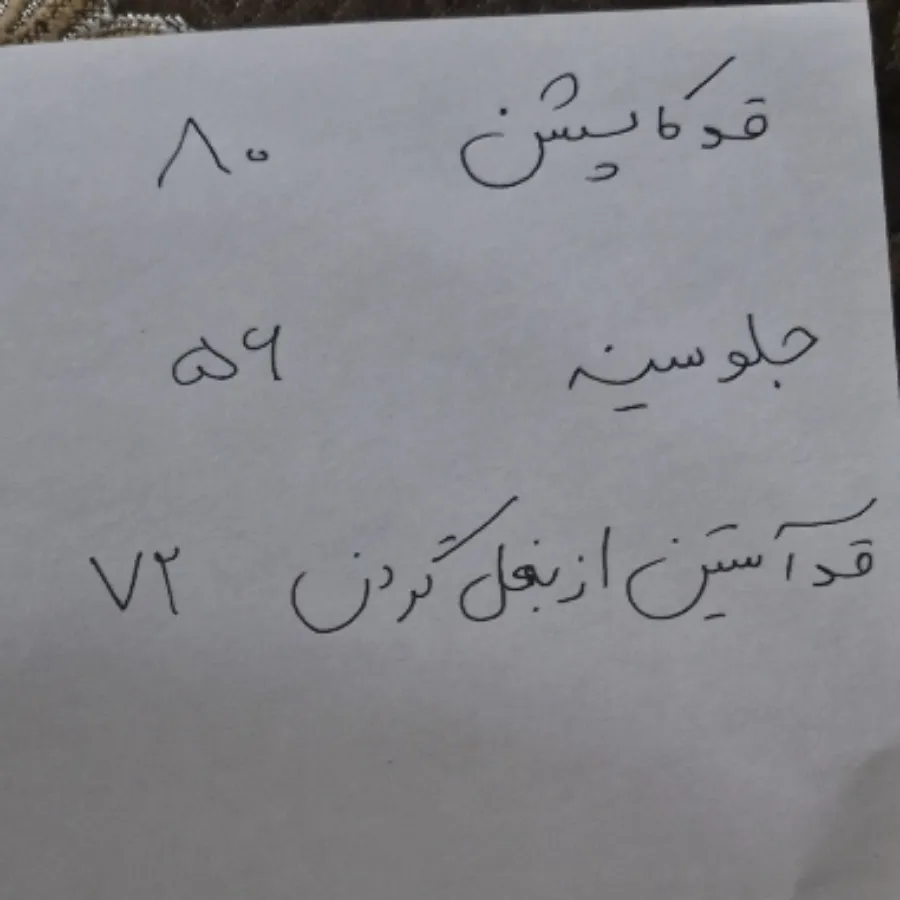 قد کاپشن ۸۰
جلو سینه ۵۶
قد آستین از بغل گردن ۷۲